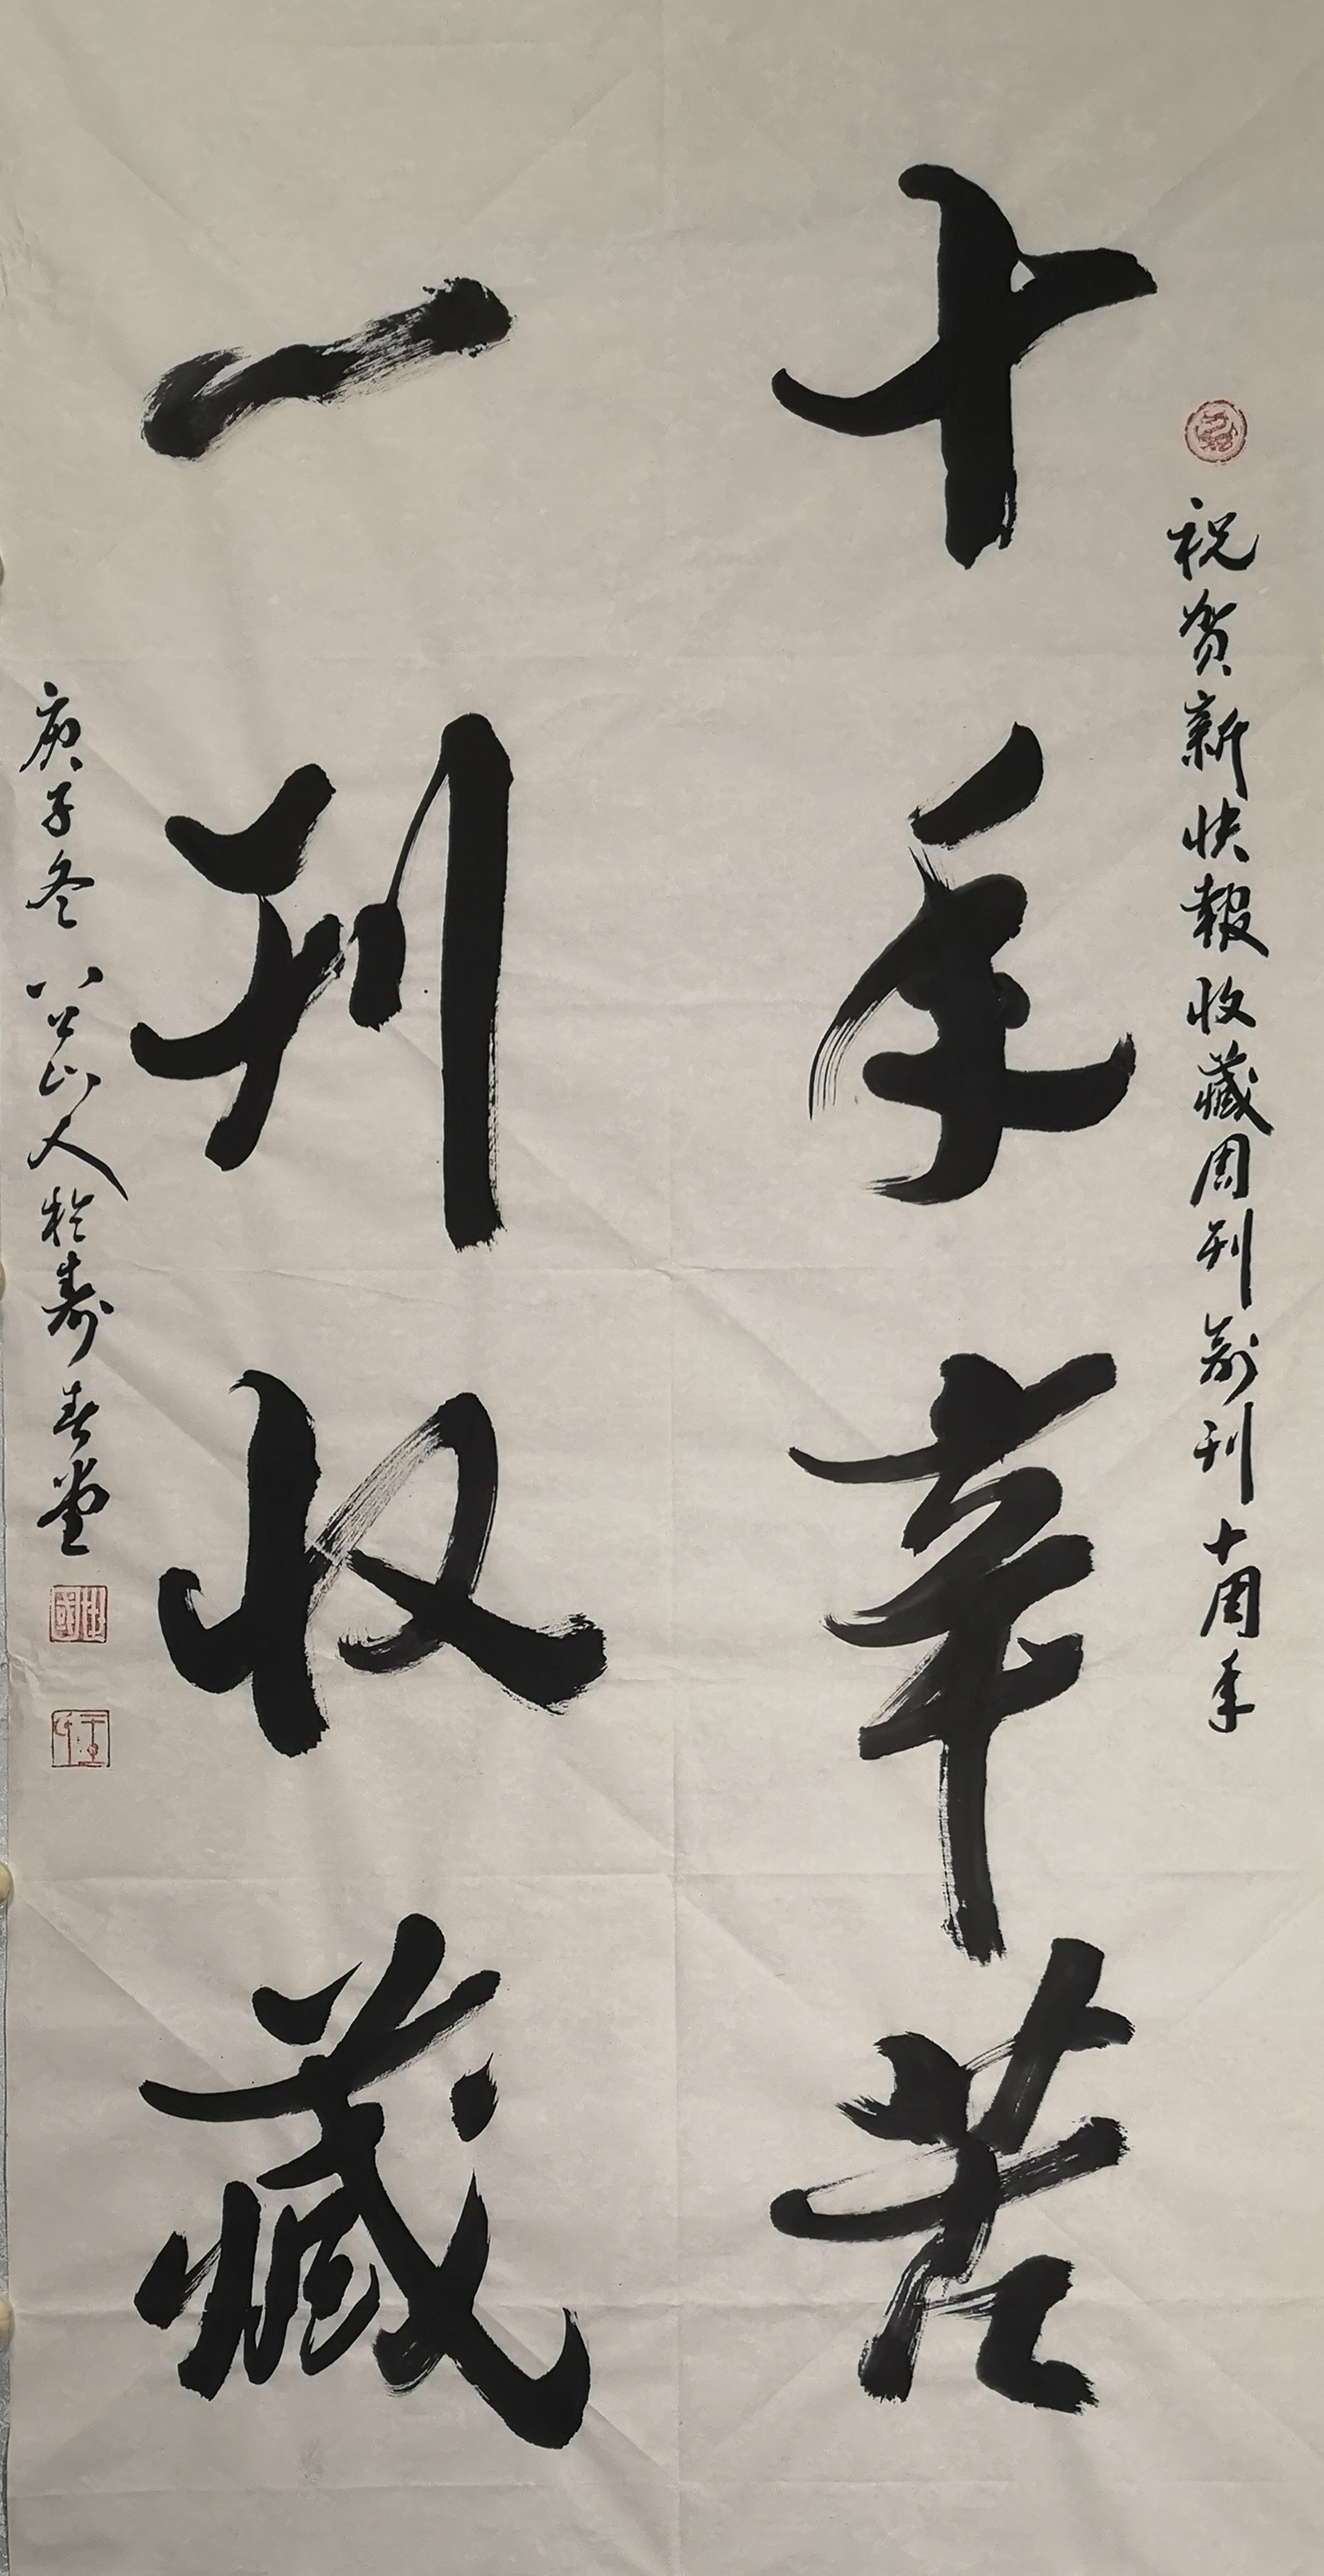 祝贺新快報收藏周刊創刊十周年
十年辛苦
一刊收藏
庚子冬八公山人於壽春堂
世國
王氏